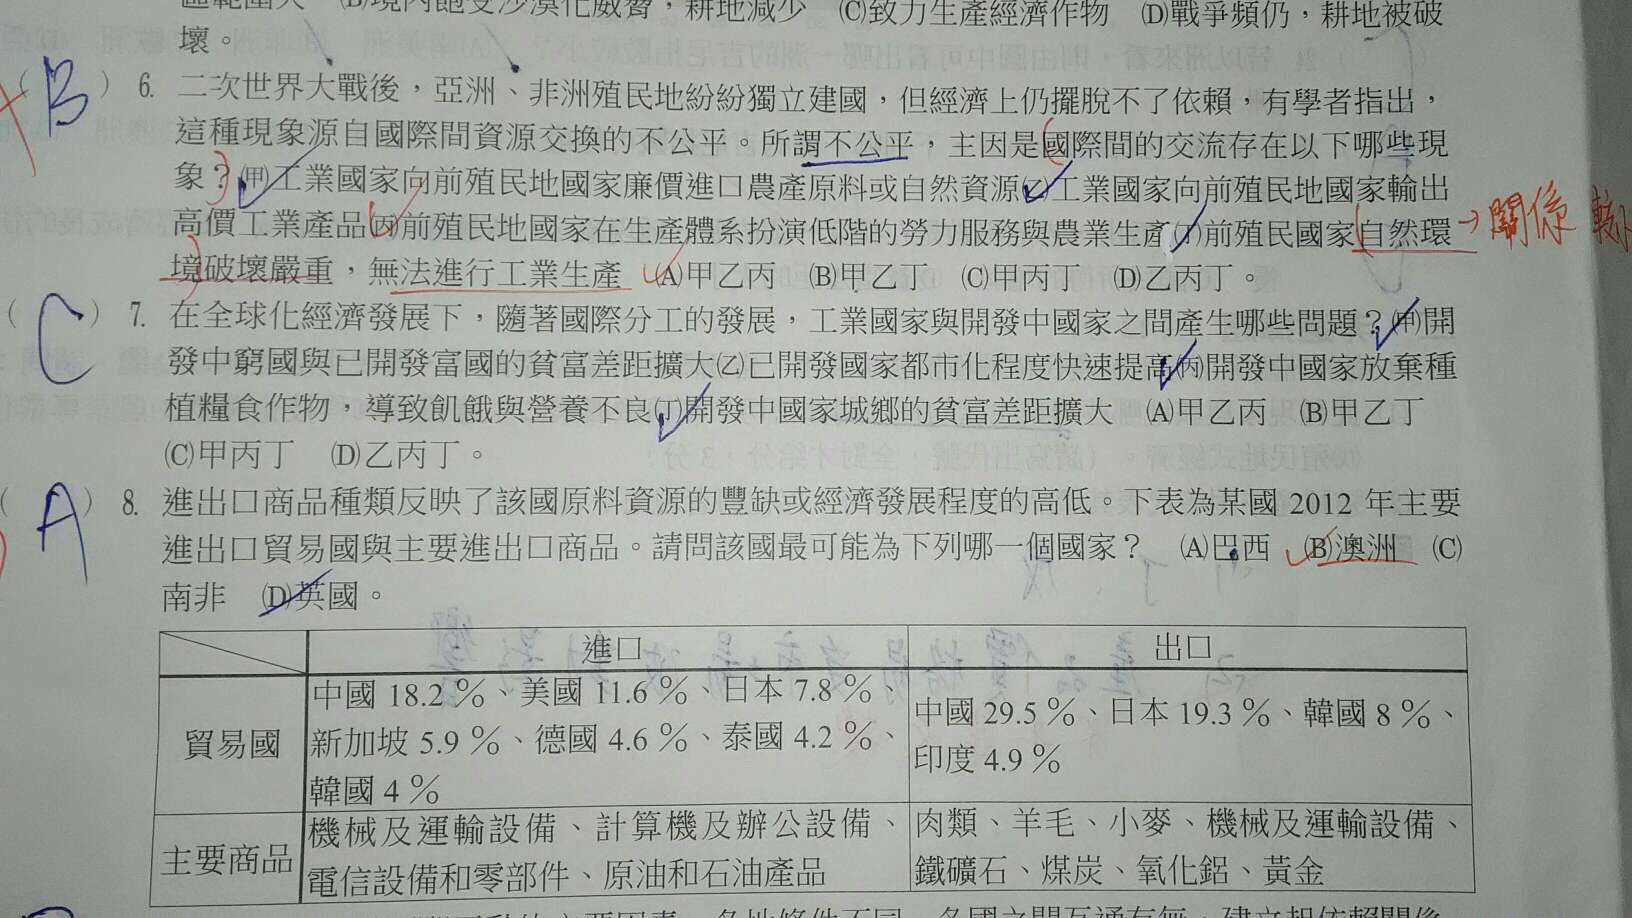 區範圍大 (B)境內飽受沙漠化威脅，耕地減少 (C)致力生產經濟作物 (D)戰爭頻仍，耕地被破
壞。
(B) 6. 二次世界大戰後，亞洲、非洲殖民地紛紛獨立建國，但經濟上仍擺脫不了依賴，有學者指出，
這種現象源自國際間資源交換的不公平。所謂不公平，主因是國際間的交流存在以下哪些現
象？(甲)工業國家向前殖民地國家廉價進口農產原料或自然資源(乙)工業國家向前殖民地國家輸出
高價工業產品(丙)前殖民地國家在生產體系扮演低階的勞力服務與農業生產(丁)前殖民國家自然環 →關係
境破壞嚴重，無法進行工業生產 (A)甲乙丙 (B)甲乙丁 (C)甲丙丁 (D)乙丙丁。
(C) 7. 在全球化經濟發展下，隨著國際分工的發展，工業國家與開發中國家之間產生哪些問題？(甲)開
發中窮國與已開發富國的貧富差距擴大(乙)已開發國家都市化程度快速提高(丙)開發中國家放棄種
植糧食作物，導致飢餓與營養不良(丁)開發中國家城鄉的貧富差距擴大 (A)甲乙丙 (B)甲乙丁
(C)甲丙丁 (D)乙丙丁。
(A) 8. 進出口商品種類反映了該國原料資源的豐缺或經濟發展程度的高低。下表為某國 2012 年主要
進出口貿易國與主要進出口商品。請問該國最可能為下列哪一個國家？ (A)巴西 (B)澳洲 (C)
南非 (D)英國。
進口 出口
貿易國
中國 18.2 %、美國 11.6 %、日本 7.8 %、
新加坡 5.9 %、德國 4.6 %、泰國 4.2 %、
韓國 4 %
中國 29.5 %、日本 19.3 %、韓國 8 %、
印度 4.9 %
主要商品
機械及運輸設備、計算機及辦公設備、
電信設備和零部件、原油和石油產品
肉類、羊毛、小麥、機械及運輸設備、
鐵礦石、煤炭、氧化鋁、黃金